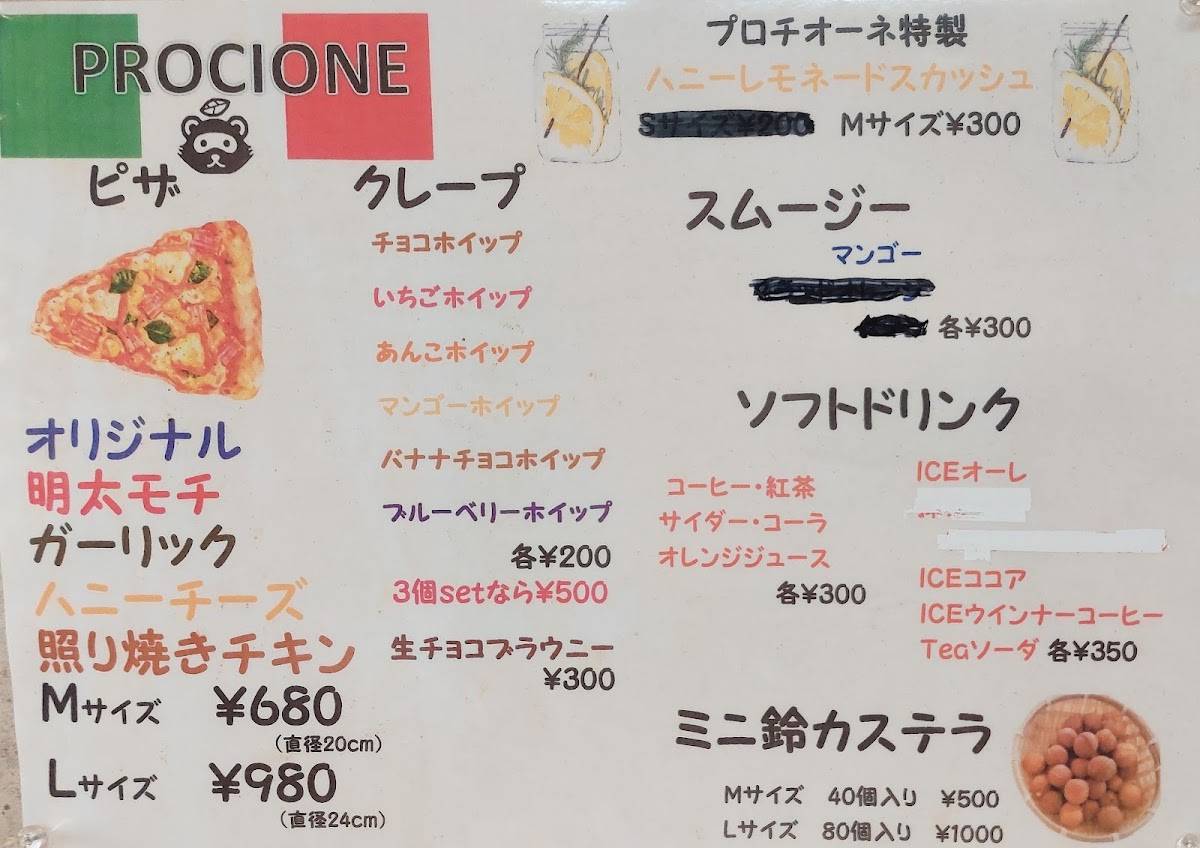 PROCIONE
ピザ
オリジナル
明太モチ
ガーリック
ハニーチーズ
照り焼きチキン
Mサイズ ¥680
(直径20cm)
Lサイズ ¥980
(直径24cm)
クレープ
チョコホイップ
いちごホイップ
あんこホイップ
マンゴーホイップ
バナナチョコホイップ
ブルーベリーホイップ
各¥200
3個setなら¥500
生チョコブラウニー
¥300
プロチオーネ特製
ハニーレモネードスカッシュ
Sサイズ¥200 Mサイズ¥300
スムージー
マンゴー
各¥300
ソフトドリンク
コーヒー・紅茶
サイダー・コーラ
オレンジジュース
各¥300
ICEオーレ
ICEココア
ICEウインナーコーヒー
Teaソーダ 各¥350
ミニ鈴カステラ
Mサイズ 40個入り ¥500
Lサイズ 80個入り ¥1000